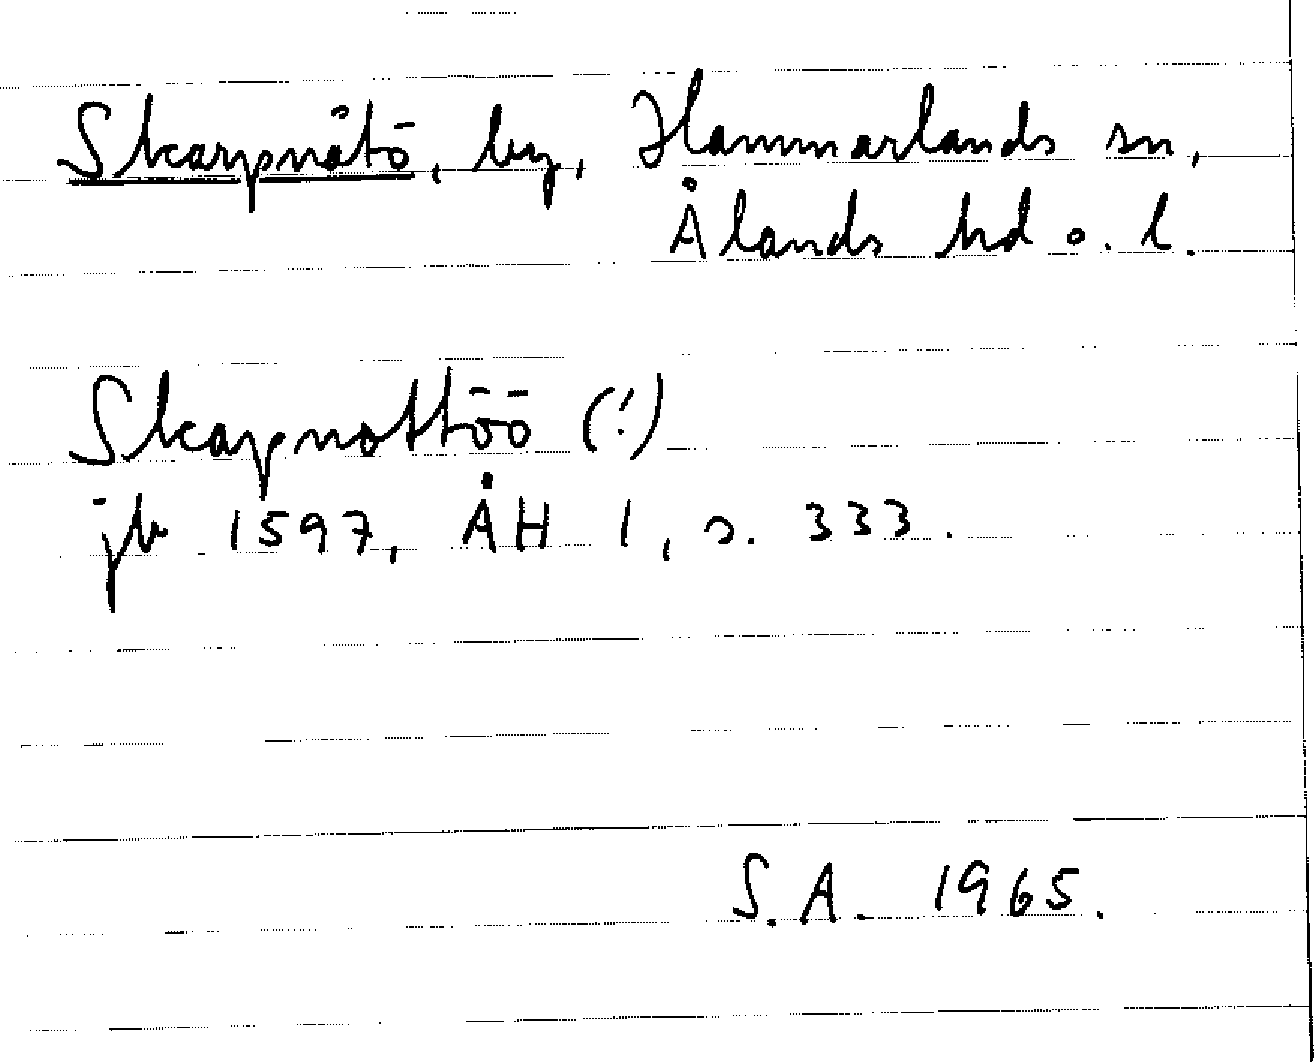 Skarpnåtö, by, Hammarlands sn,
Ålands hd o. l.
Skapnottöö (!)
jb 1597, ÅH 1, s. 333.
S.A. 1965.